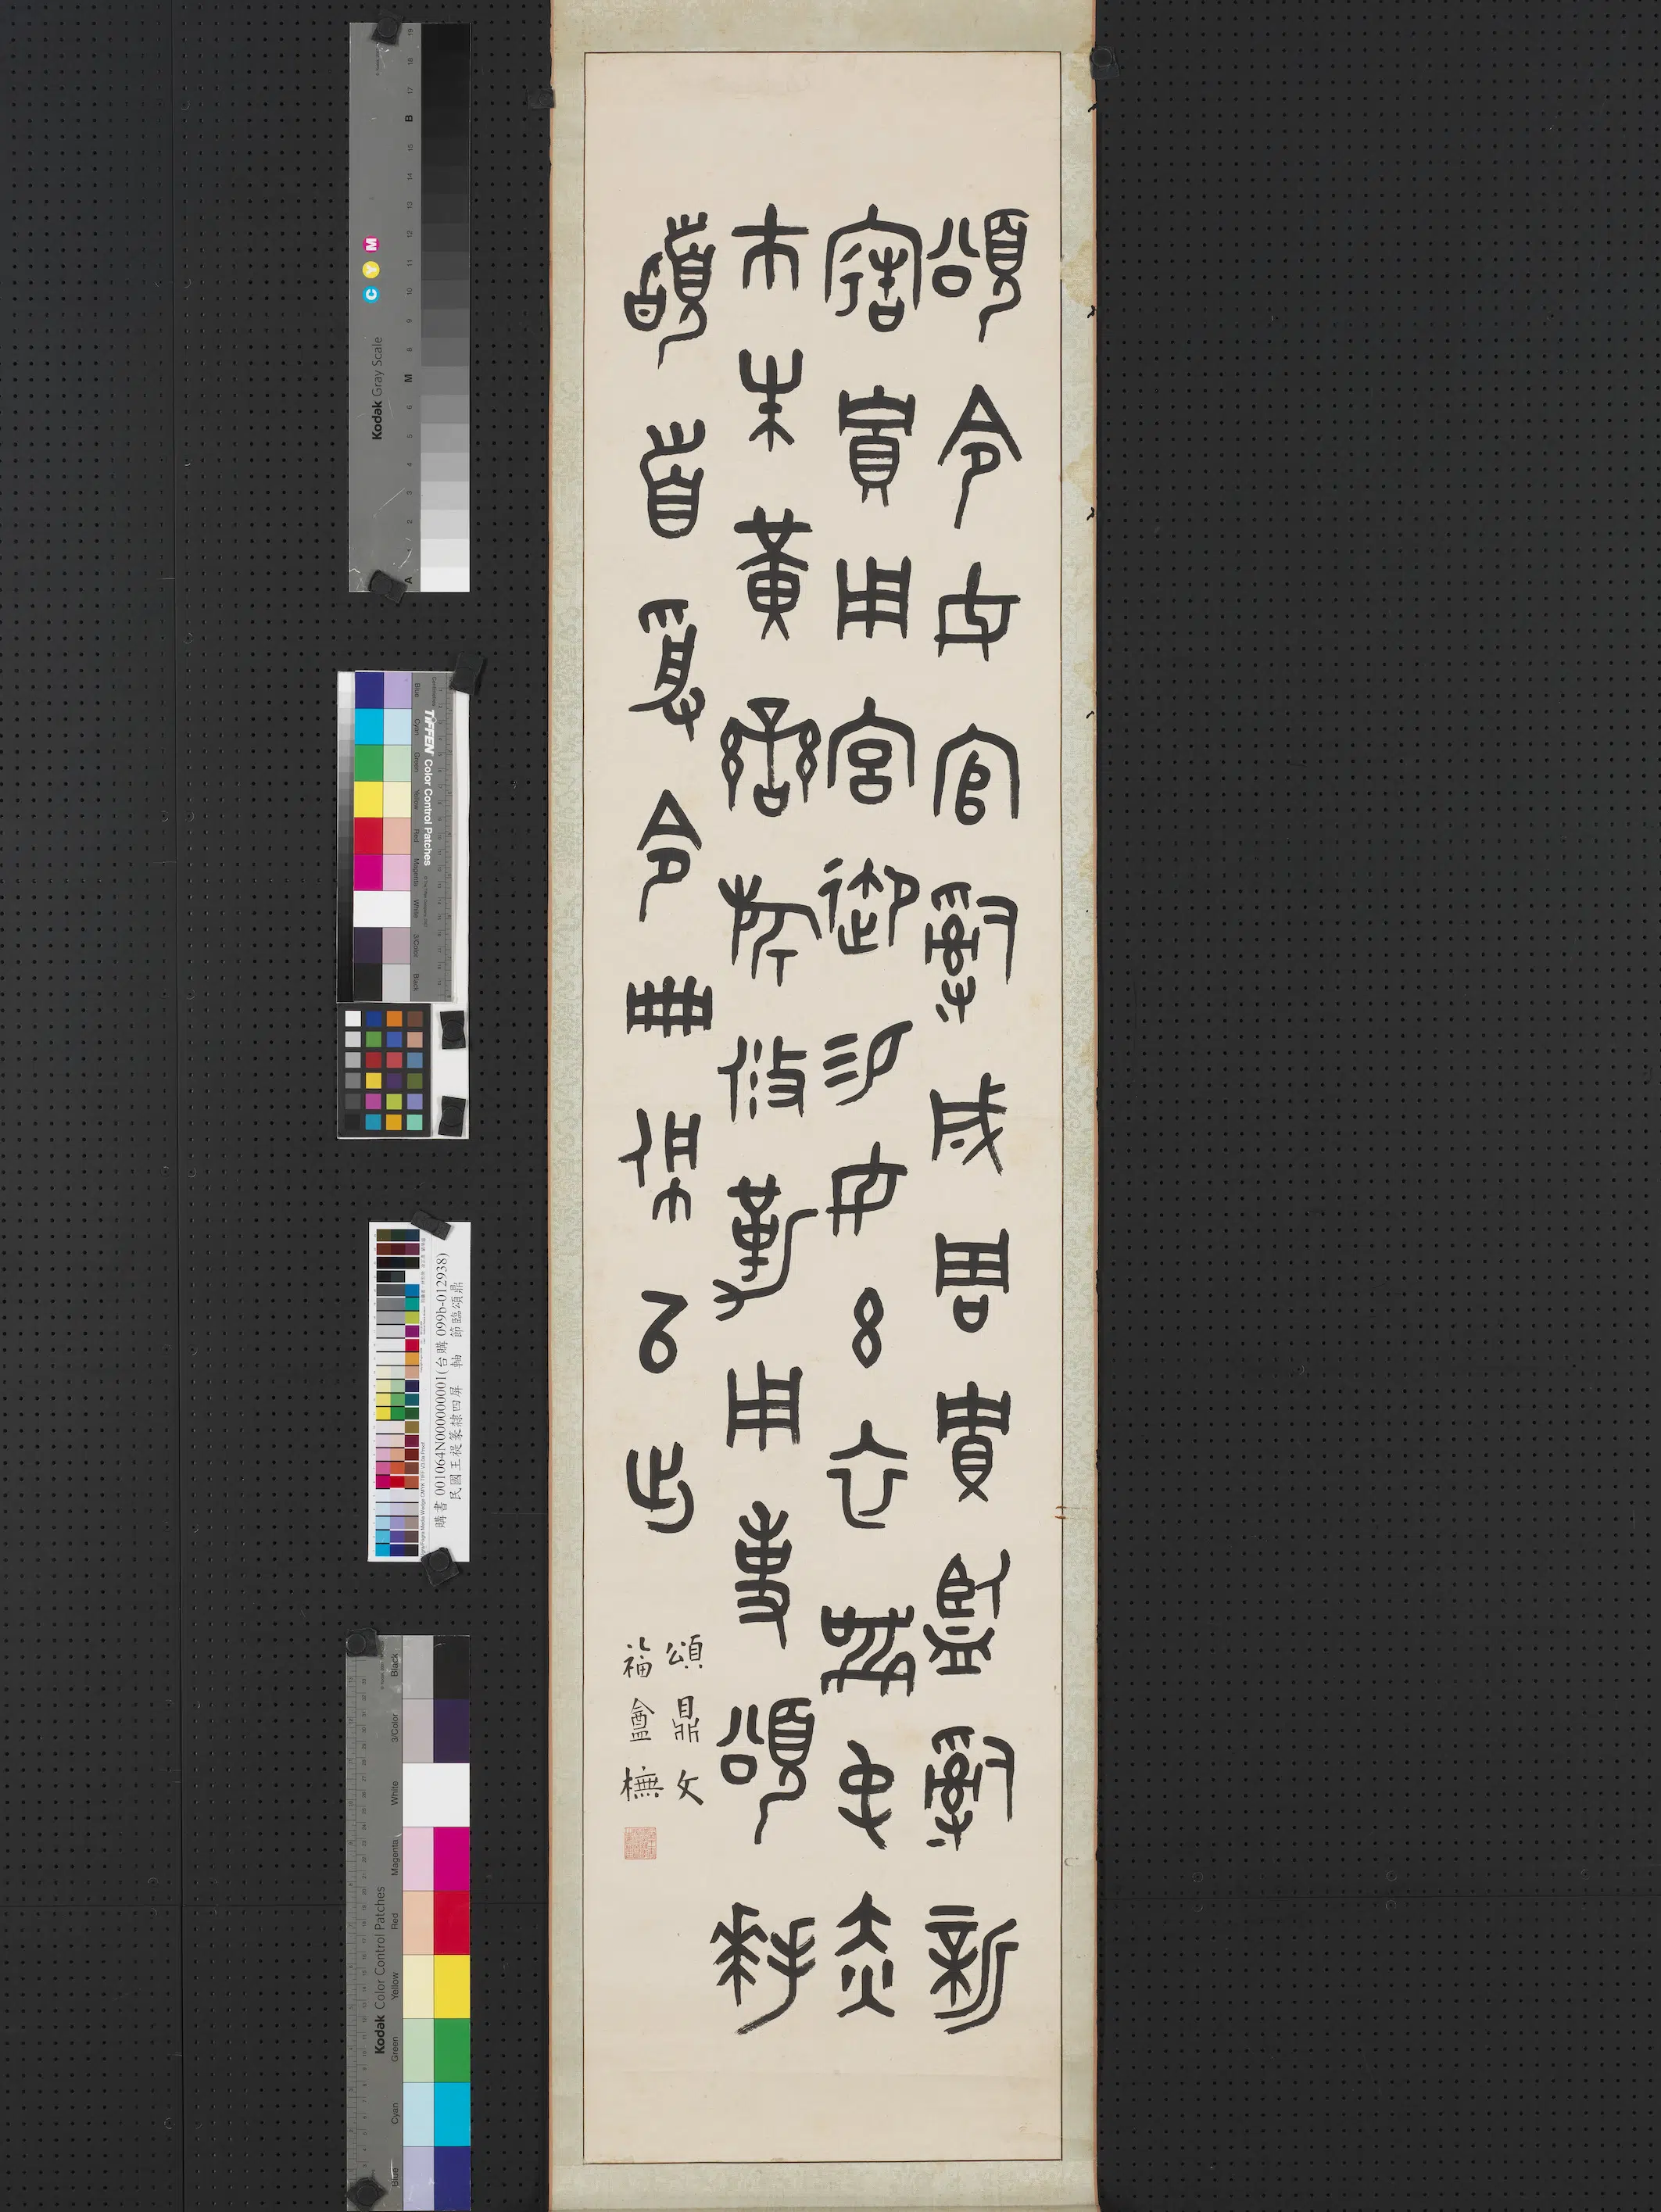 頌令女官𤔲成周貯監𤔲新
造貯用宮御易女玄衣黹屯赤
巿朱黃䜌旂攸勒用事頌拜
𩒨首受令冊佩以出
頌鼎文
福盦橅
Kodak Gray Scale
C Y M
TIFFEN Color Control Patches
Blue Cyan Green Yellow Red Magenta White 3/Color Black
購書 001064N000000001(台購 099b-012938)
民國王禔篆隸四屏 軸 節臨頌鼎
Kodak Color Control Patches
Blue Cyan Green Yellow Red Magenta White 3/Color Black